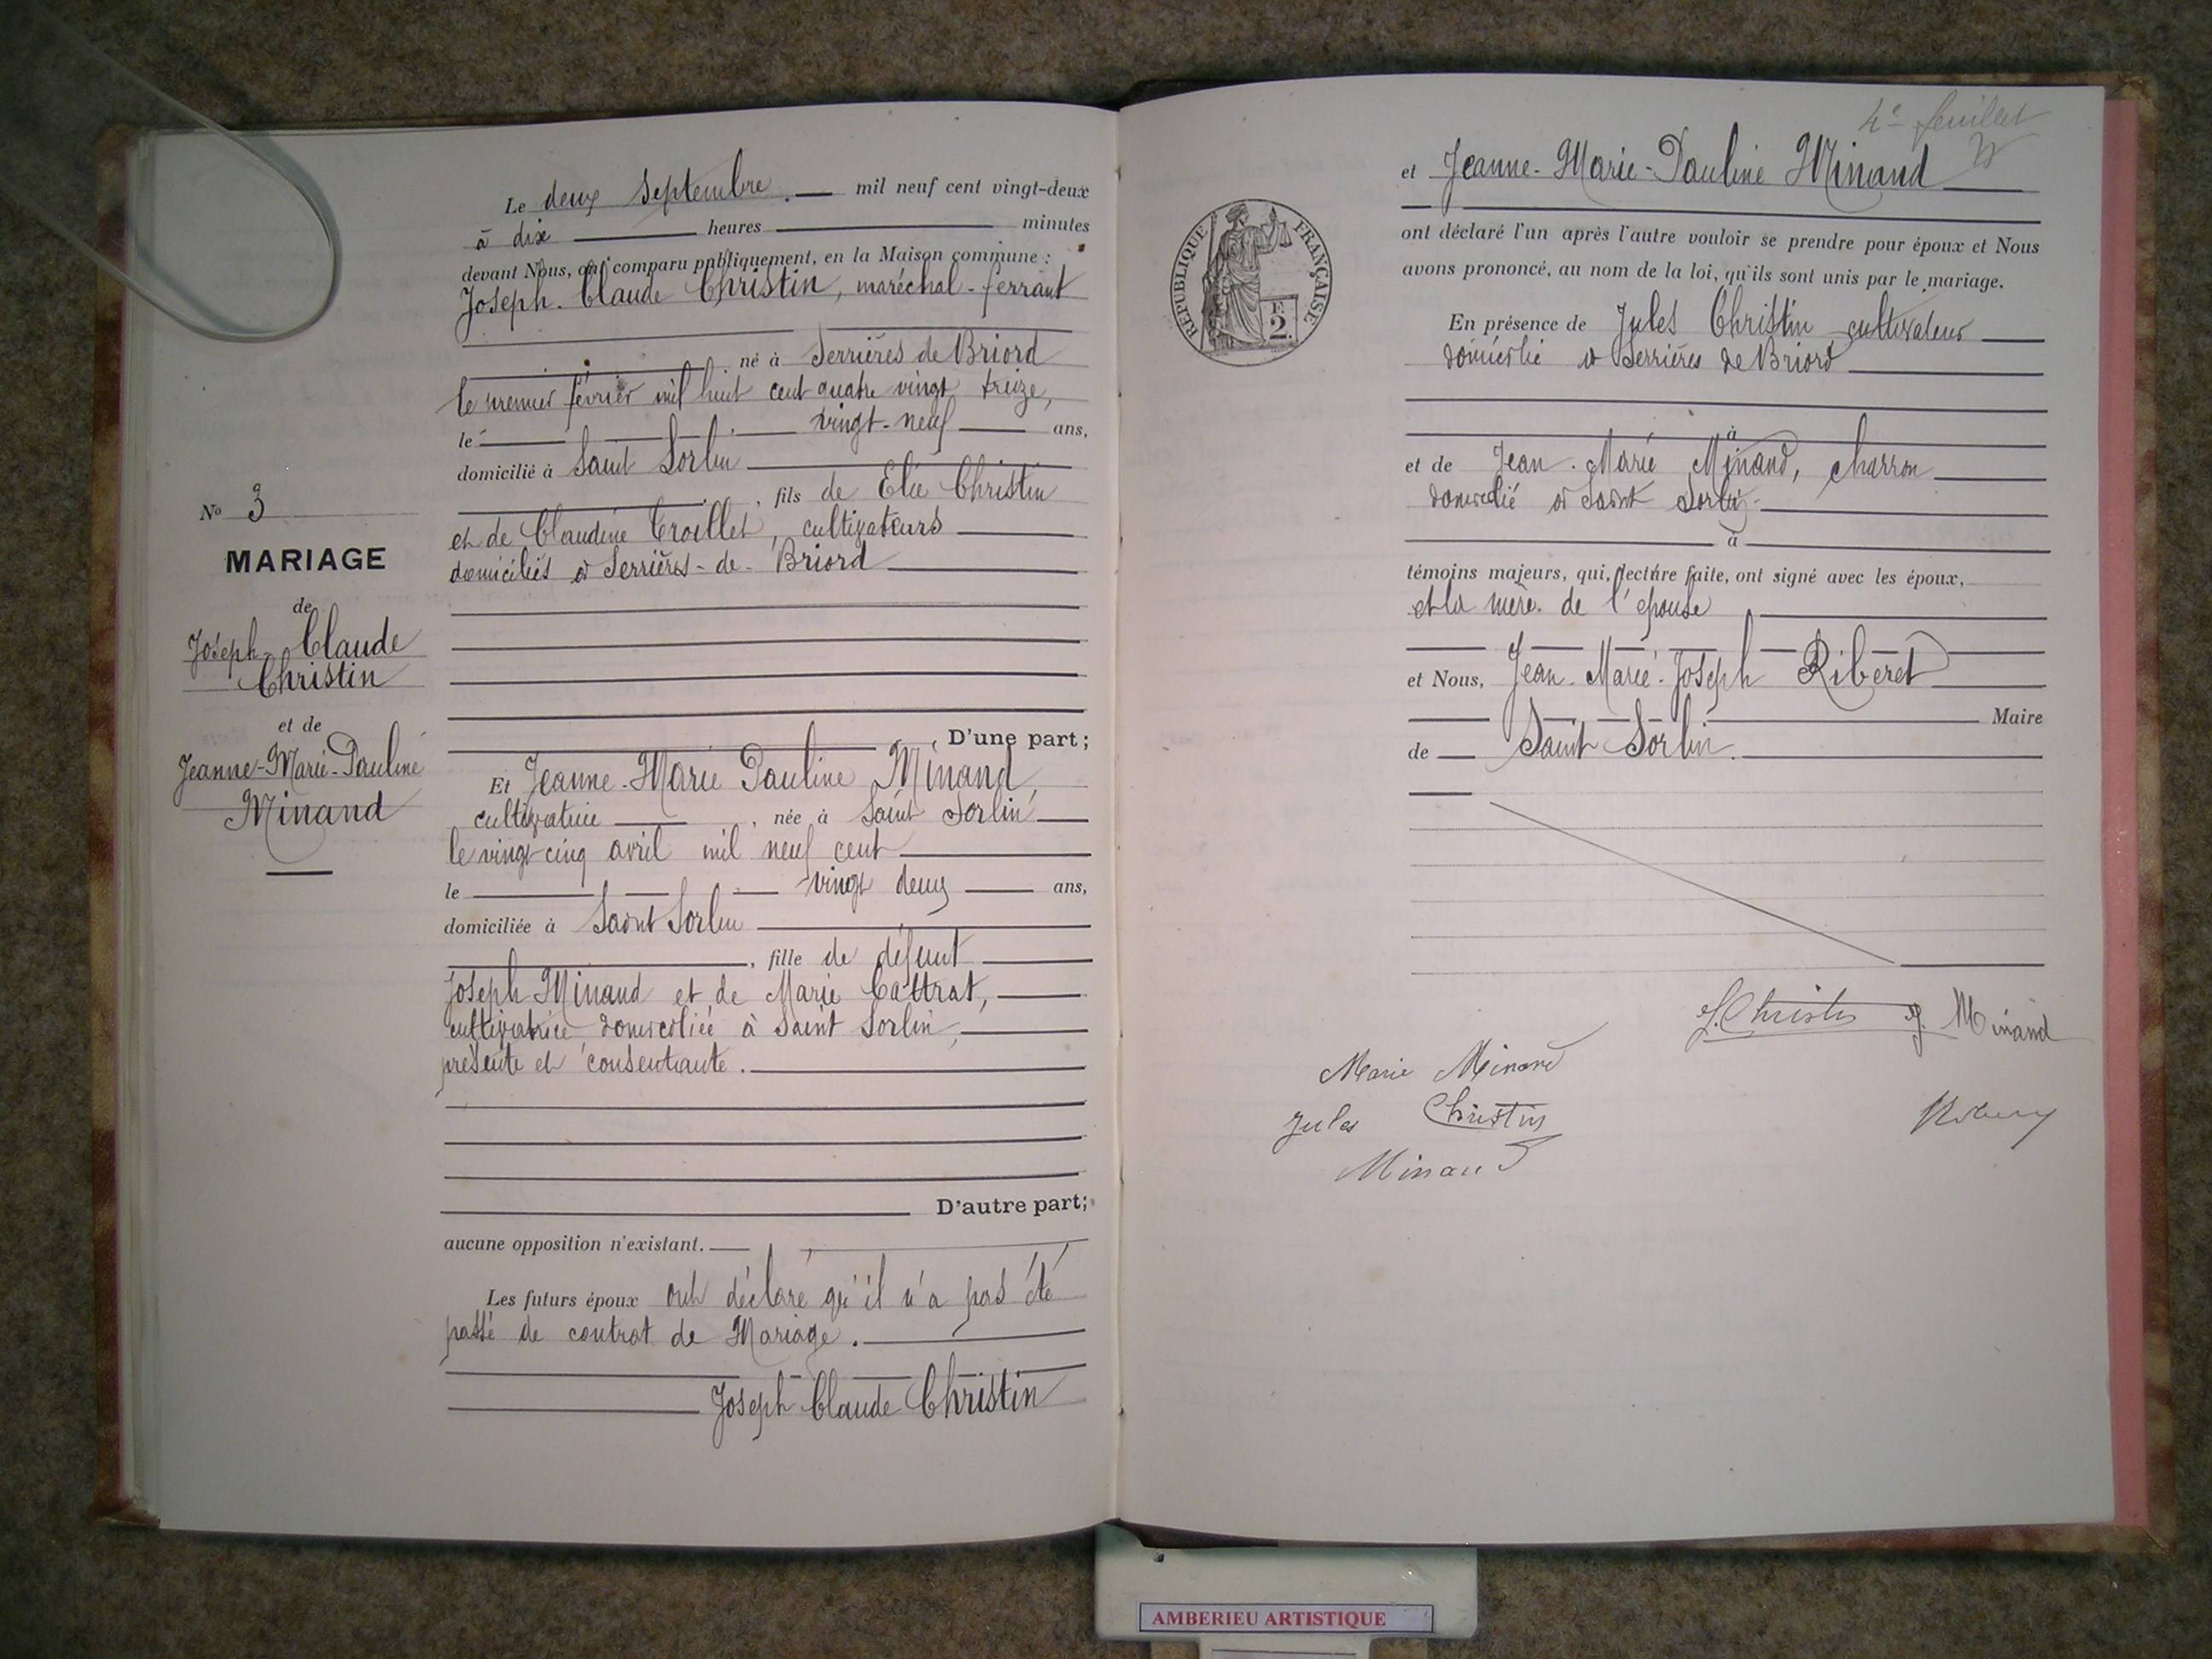 Nº 3
MARIAGE
de
Joseph Claude
Christin
et de
Jeanne-Marie-Pauline
Minand
Le deux septembre. mil neuf cent vingt-deux
à dix heures minutes
devant Nous, ont comparu publiquement, en la Maison commune :
Joseph-Claude Christin, maréchal-ferrant
né à Serrières de Briord
le premier février mil huit cent quatre vingt treize,
le vingt-neuf ans,
domicilié à Saint Sorlin
, fils de Elie Christin
et de Claudine Troillet, cultivateurs
domiciliés à Serrières-de-Briord
D'une part;
Et Jeanne-Marie Pauline Minand,
cultivatrice , née à Saint Sorlin
le vingt cinq avril mil neuf cent
le vingt deux ans,
domiciliée à Saint Sorlin
, fille de défunt
Joseph Minand et de Marie Cattrat,
cultivatrice domiciliée à Saint Sorlin,
présente et consentante.
D'autre part;
aucune opposition n'existant.
Les futurs époux ont déclaré qu'il n'a pas été
passé de contrat de Mariage.
Joseph-Claude Christin
4e feuillet
et Jeanne-Marie-Pauline Minand
REPUBLIQUE FRANÇAISE
F
2.
ont déclaré l'un après l'autre vouloir se prendre pour époux et Nous
avons prononcé, au nom de la loi, qu'ils sont unis par le mariage.
En présence de Jules Christin cultivateur
domicilié à Serrières de Briord
à
et de Jean-Marie Minand, charron
domicilié à Saint Sorlin
à
témoins majeurs, qui, lecture faite, ont signé avec les époux,
et la mère de l'épouse
et Nous, Jean-Marie-Joseph Riberet
Maire
de Saint Sorlin.
J. Christin J. Minand
Marie Minand
Jules Christin
Minand
AMBERIEU ARTISTIQUE